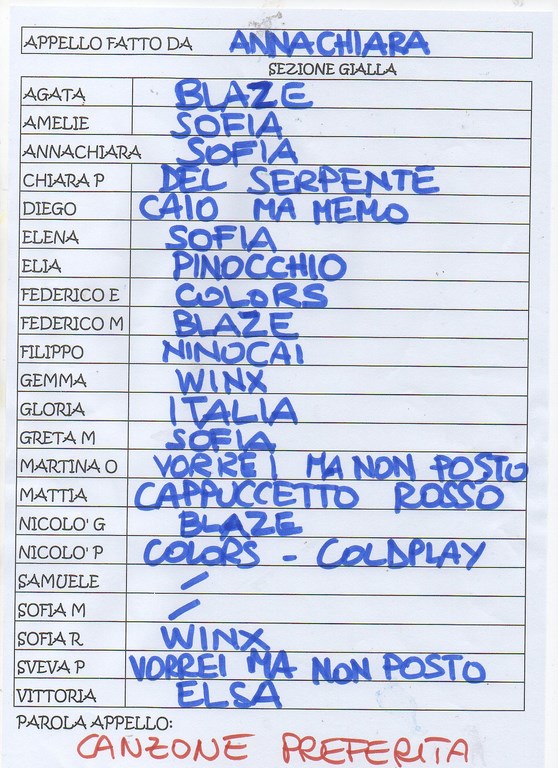 APPELLO FATTO DA ANNACHIARA
SEZIONE GIALLA
AGATA BLAZE
AMELIE SOFIA
ANNACHIARA SOFIA
CHIARA P DEL SERPENTE
DIEGO CAIO MA MEMO
ELENA SOFIA
ELIA PINOCCHIO
FEDERICO E COLORS
FEDERICO M BLAZE
FILIPPO NINOCAI
GEMMA WINX
GLORIA ITALIA
GRETA M SOFIA
MARTINA O VORREI MA NON POSTO
MATTIA CAPPUCCETTO ROSSO
NICOLO' G BLAZE
NICOLO' P COLORS - COLDPLAY
SAMUELE /
SOFIA M /
SOFIA R WINX
SVEVA P VORREI MA NON POSTO
VITTORIA ELSA
PAROLA APPELLO:
CANZONE PREFERITA